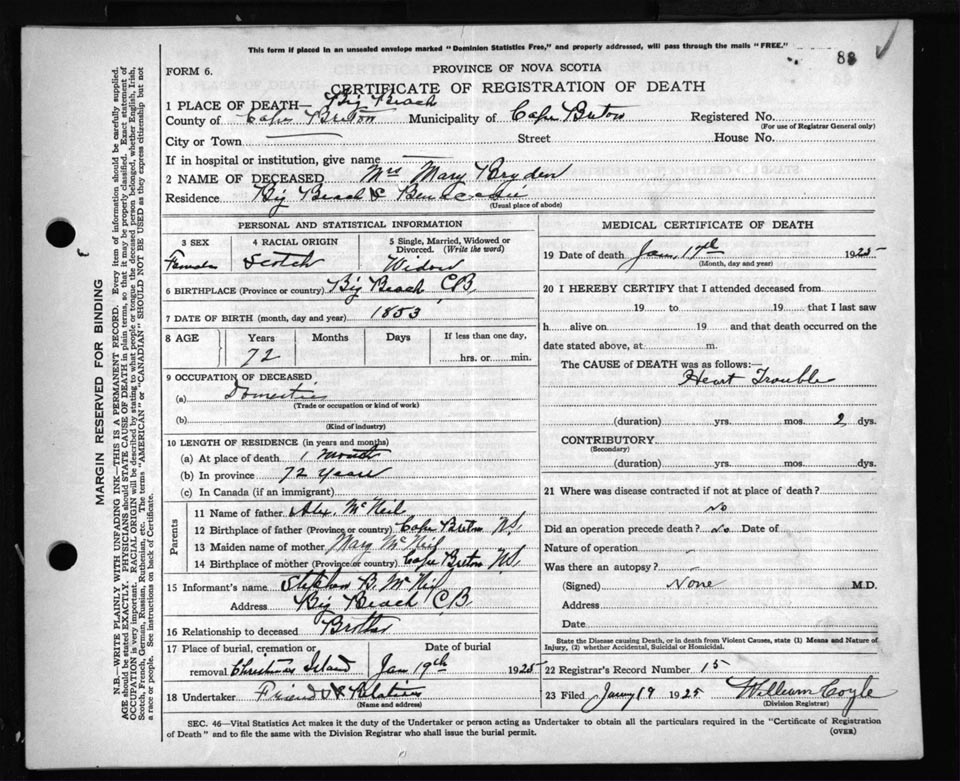 This form if placed in an unsealed envelope marked "Dominion Statistics Free," and properly addressed, will pass through the mails "FREE."
88
FORM 6.
PROVINCE OF NOVA SCOTIA
CERTIFICATE OF REGISTRATION OF DEATH
1 PLACE OF DEATH— Big Beach
County of Cape Breton Municipality of Cape Breton Registered No.
(For use of Registrar General only)
City or Town Street House No.
If in hospital or institution, give name
2 NAME OF DECEASED Mrs Mary Bryden
Residence Big Beach
(Usual place of abode)
PERSONAL AND STATISTICAL INFORMATION
3 SEX 4 RACIAL ORIGIN 5 Single, Married, Widowed or Divorced. (Write the word)
Female Scotch Widow
6 BIRTHPLACE (Province or country) Big Beach CB
7 DATE OF BIRTH (month, day and year) 1853
8 AGE Years Months Days If less than one day,
72 hrs. or min.
9 OCCUPATION OF DECEASED
(a) Domestic
(Trade or occupation or kind of work)
(b)
(Kind of industry)
10 LENGTH OF RESIDENCE (in years and months)
(a) At place of death 1 month
(b) In province 72 years
(c) In Canada (if an immigrant)
Parents
11 Name of father Alex. McNeil
12 Birthplace of father (Province or country) Cape Breton N.S.
13 Maiden name of mother Mary McNeil
14 Birthplace of mother (Province or country) Cape Breton N.S.
15 Informant's name Stephen B. McNeil
Address Big Beach CB
16 Relationship to deceased Brother
17 Place of burial, cremation or Date of burial
removal Christmas Island Jan 19th 1925
18 Undertaker Friends & Relatives
(Name and address)
MEDICAL CERTIFICATE OF DEATH
19 Date of death Jan, 17th 1925
(Month, day and year)
20 I HEREBY CERTIFY that I attended deceased from
19 to 19 that I last saw
h alive on 19 and that death occurred on
date stated above, at m.
The CAUSE of DEATH was as follows:—
Heart Trouble
(duration) yrs. mos. 2 dys.
CONTRIBUTORY
(Secondary)
(duration) yrs. mos. dys.
21 Where was disease contracted if not at place of death?
No
Did an operation precede death? No Date of
Nature of operation
Was there an autopsy?
(Signed) None M.D.
Address
Date
State the Disease causing Death, or in death from Violent Causes, state (1) Means and Nature of
Injury, (2) whether Accidental, Suicidal or Homicidal.
22 Registrar's Record Number 15
23 Filed Jany 19 1925 William Coyle
(Division Registrar)
SEC. 46—Vital Statistics Act makes it the duty of the Undertaker or person acting as Undertaker to obtain all the particulars required in the "Certificate of Registration
of Death" and to file the same with the Division Registrar who shall issue the burial permit.
(OVER)
MARGIN RESERVED FOR BINDING
N.B.—WRITE PLAINLY WITH UNFADING INK—THIS IS A PERMANENT RECORD. Every item of information should be carefully supplied.
AGE should be stated EXACTLY. PHYSICIANS should STATE CAUSE OF DEATH in plain terms, so that it may be properly classified. Exact statement of
OCCUPATION is very important. RACIAL ORIGIN will be described by stating to what people or tongue the deceased person belonged, whether English, Irish,
Scotch, French, German, Russian, Ruthenian, etc. The terms "AMERICAN" or "CANADIAN" SHOULD NOT BE USED as they express citizenship but not
a race or people. See instructions on back of Certificate.